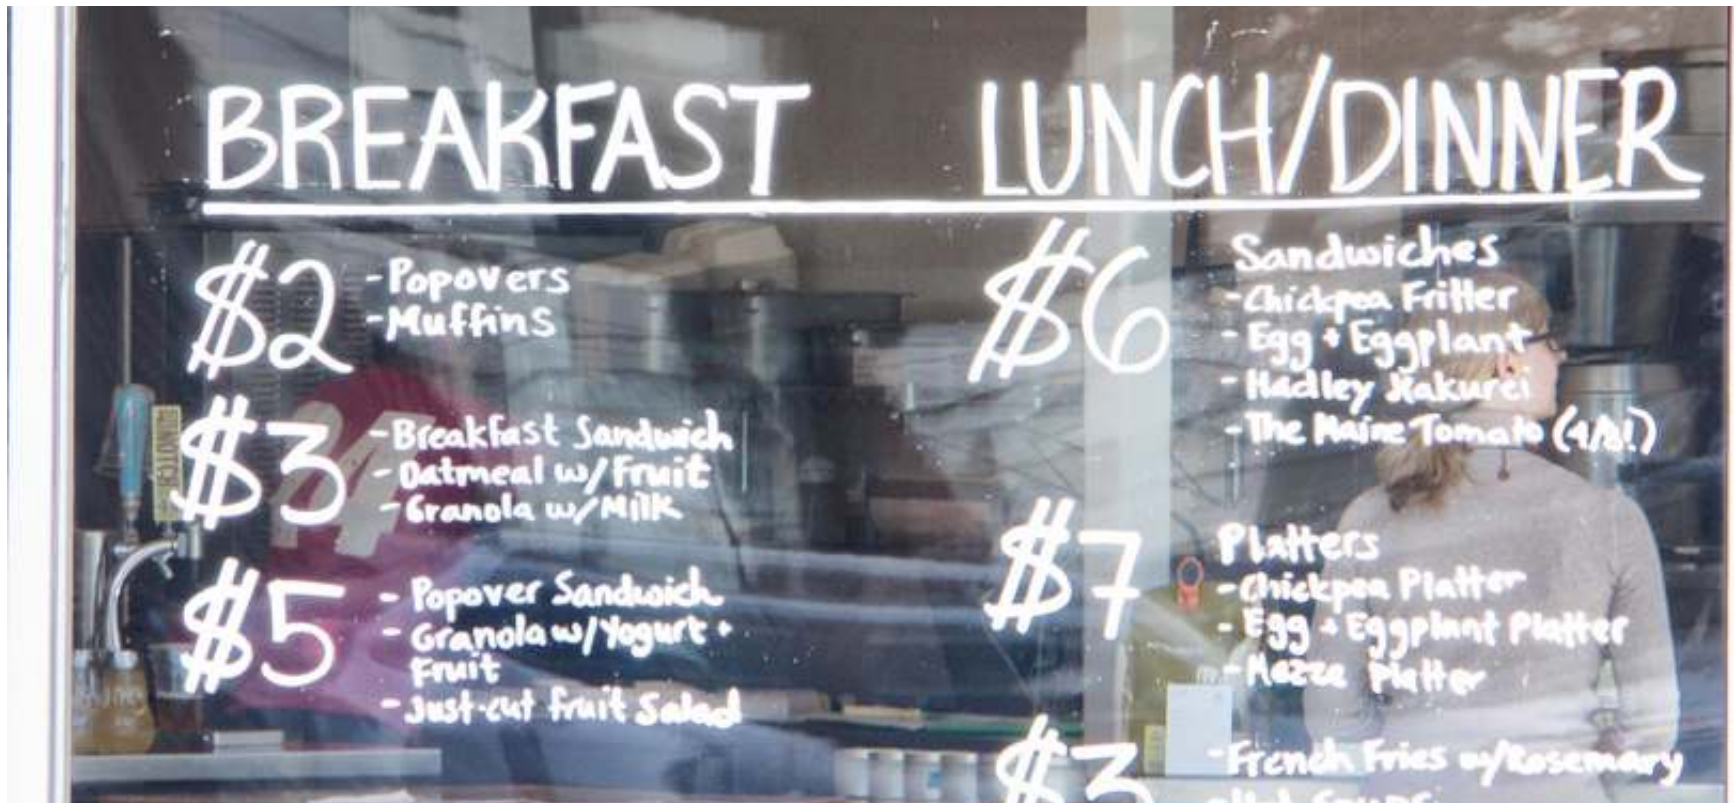 BREAKFAST
$2
-Popovers
-Muffins
$3
-Breakfast Sandwich
-Oatmeal w/Fruit
-Granola w/Milk
$5
-Popover Sandwich
-Granola w/Yogurt +
Fruit
-Just-cut fruit Salad
LUNCH/DINNER
$6
Sandwiches
-Chickpea Fritter
-Egg + Eggplant
-Hadley Hakurei
-The Maine Tomato (4/8!)
$7
Platters
-Chickpea Platter
-Egg + Eggplant Platter
-Mezze Platter
$3
-French Fries w/Rosemary
24